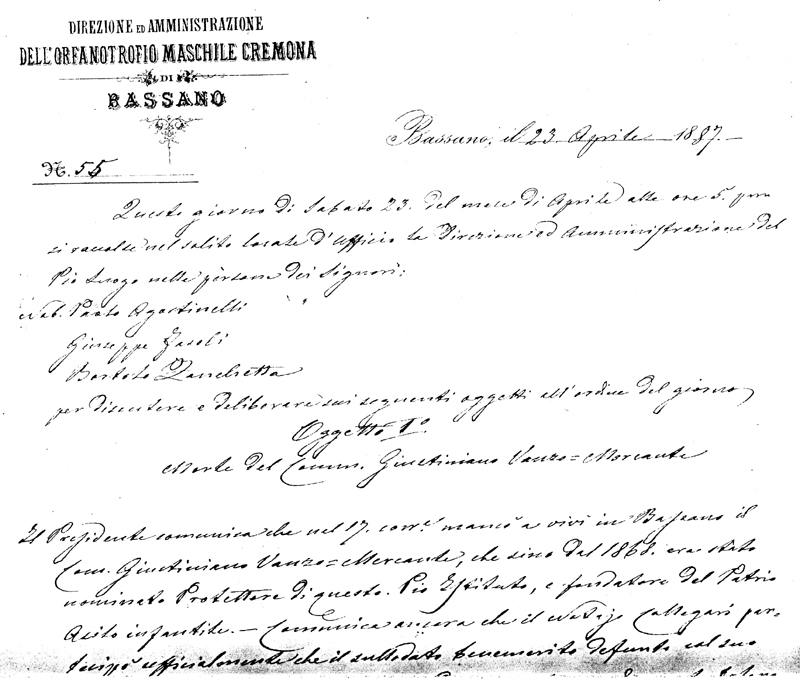 DIREZIONE ED AMMINISTRAZIONE
DELL'ORFANOTROFIO MASCHILE CREMONA
DI
BASSANO
Bassano, il 23 Aprile 1887.
N. 55
Questo giorno di Sabato 23. del mese di Aprile alle ore 5. pom
si raccolse nel solito locale d'Ufficio la Direzione ed Amministrazione del
Pio Luogo nelle persone dei Signori:
Nob. Paolo Agostinelli
Giuseppe Fasoli
Bortolo Zanchetta
per discutere e deliberare sui seguenti oggetti all'ordine del giorno
Oggetto Iº.
Morte del Comm. Giustiniano Vanzo=Mercante
Il Presidente comunica che nel 17. corre mancò a vivi in Bassano il
Com. Giustiniano Vanzo=Mercante, che sino dal 1868. era stato
nominato Protettore di questo. Pio Istituto, e fondatore del Patrio
Asilo infantile.- Comunica ancora che il Notajo Collegari par=
tecipò ufficialmente che il sullodato benemerito defunto col suo